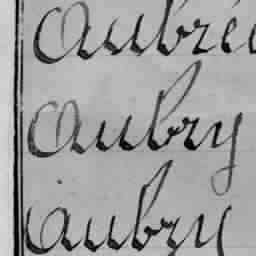 Aubré
Aubry
Aubry